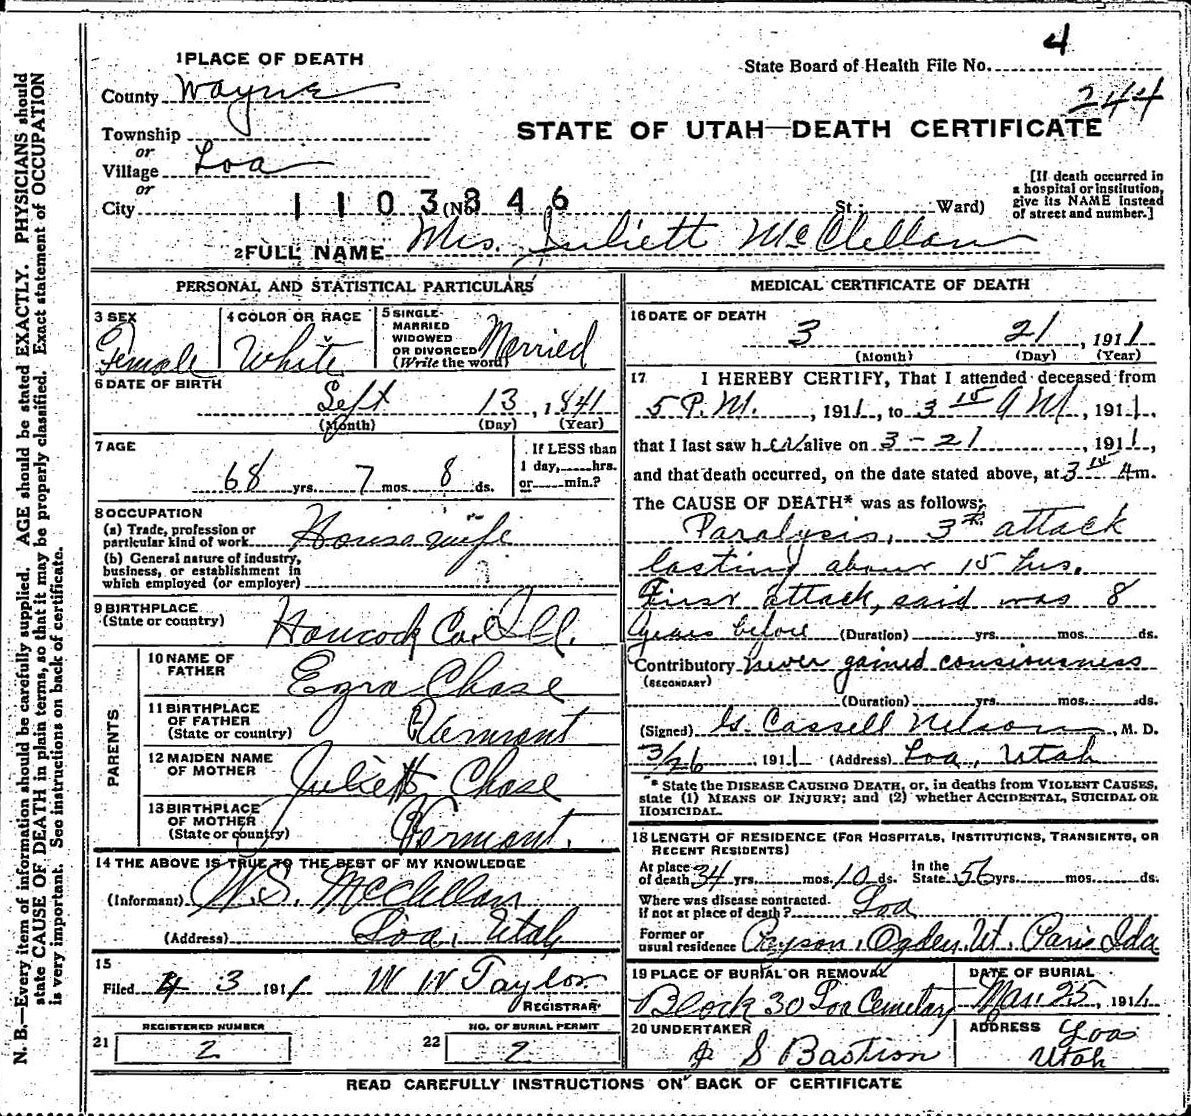 4
1 PLACE OF DEATH
State Board of Health File No.
County Wayne
244
Township
or
STATE OF UTAH—DEATH CERTIFICATE
Village Loa
or
[If death occurred in a hospital or institution, give its NAME instead of street and number.]
City (No. St.; Ward)
1103846
2 FULL NAME Mrs. Juliett McClellan
PERSONAL AND STATISTICAL PARTICULARS
3 SEX Female
4 COLOR OR RACE White
5 SINGLE MARRIED WIDOWED OR DIVORCED (Write the word) Married
6 DATE OF BIRTH Sept 13, 1841
(Month) (Day) (Year)
7 AGE 68 yrs. 7 mos. 8 ds.
If LESS than 1 day, hrs. or min.?
8 OCCUPATION
(a) Trade, profession or particular kind of work Housewife
(b) General nature of industry, business, or establishment in which employed (or employer)
9 BIRTHPLACE (State or country) Hancock Co. Ill.
PARENTS
10 NAME OF FATHER Ezra Chase
11 BIRTHPLACE OF FATHER (State or country) Vermont
12 MAIDEN NAME OF MOTHER Juliett Chase
13 BIRTHPLACE OF MOTHER (State or country) Vermont.
14 THE ABOVE IS TRUE TO THE BEST OF MY KNOWLEDGE
(Informant) W.S. McClellan
(Address) Loa, Utah
15
Filed 4 3 1911 W W Taylor
REGISTRAR
REGISTERED NUMBER
21 2
NO. OF BURIAL PERMIT
22 2
MEDICAL CERTIFICATE OF DEATH
16 DATE OF DEATH
3 21, 1911
(Month) (Day) (Year)
17 I HEREBY CERTIFY, That I attended deceased from
5 P.M., 1911, to 3 15 AM, 1911,
that I last saw her alive on 3-21, 1911,
and that death occurred, on the date stated above, at 3 15 Am.
The CAUSE OF DEATH* was as follows:
Paralysis, 3rd attack
lasting about 15 hrs.
First attack, said was 8
years before (Duration) yrs. mos. ds.
Contributory never gained consiousness
(SECONDARY)
(Duration) yrs. mos. ds.
(Signed) G. Cassell Nelson, M. D.
3/26 1911 (Address) Loa, Utah
* State the DISEASE CAUSING DEATH, or, in deaths from VIOLENT CAUSES, state (1) MEANS OF INJURY; and (2) whether ACCIDENTAL, SUICIDAL OR HOMICIDAL.
18 LENGTH OF RESIDENCE (FOR HOSPITALS, INSTITUTIONS, TRANSIENTS, OR RECENT RESIDENTS)
At place of death 34 yrs. mos. 10 ds. In the State 56 yrs. mos. ds.
Where was disease contracted. if not at place of death? Loa
Former or usual residence Payson, Ogden Ut. Paris Ida
19 PLACE OF BURIAL OR REMOVAL Block 30 Loa Cemetary
DATE OF BURIAL Mar. 25, 1911
20 UNDERTAKER J S Bastion
ADDRESS Loa Utah
READ CAREFULLY INSTRUCTIONS ON BACK OF CERTIFICATE
N. B.—Every item of information should be carefully supplied. AGE should be stated EXACTLY. PHYSICIANS should
state CAUSE OF DEATH in plain terms, so that it may be properly classified. Exact statement of OCCUPATION
is very important. See instructions on back of certificate.